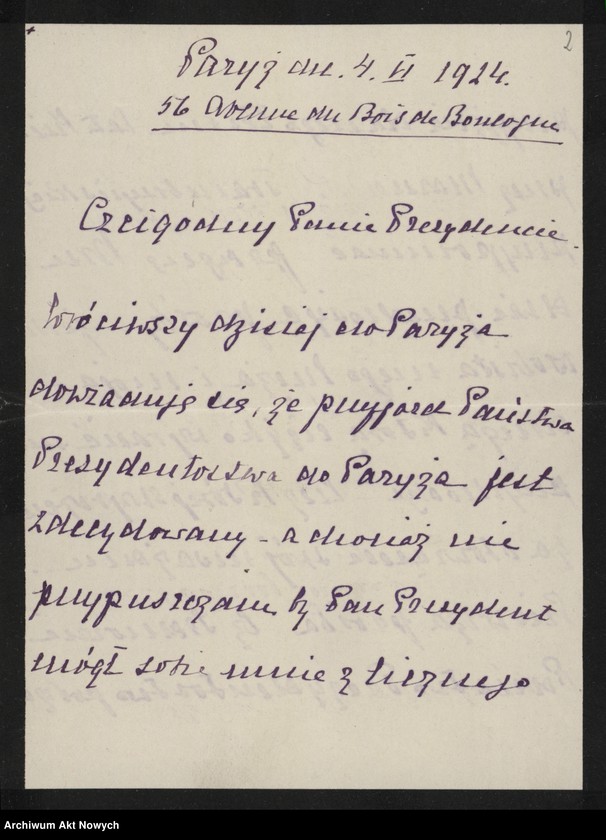 2
Paryż dn. 4. VI 1924.
56 Avenue du Bois de Boulogne
Czcigodny Panie Prezydencie.
Wróciwszy dzisiaj do Paryża
dowiaduję się, że przyjazd Państwa
Prezydentostwa do Paryża jest
zdecydowany - a chociaż nie
przypuszczam by Pan Prezydent
mógł sobie mnie z licznego
Archiwum Akt Nowych